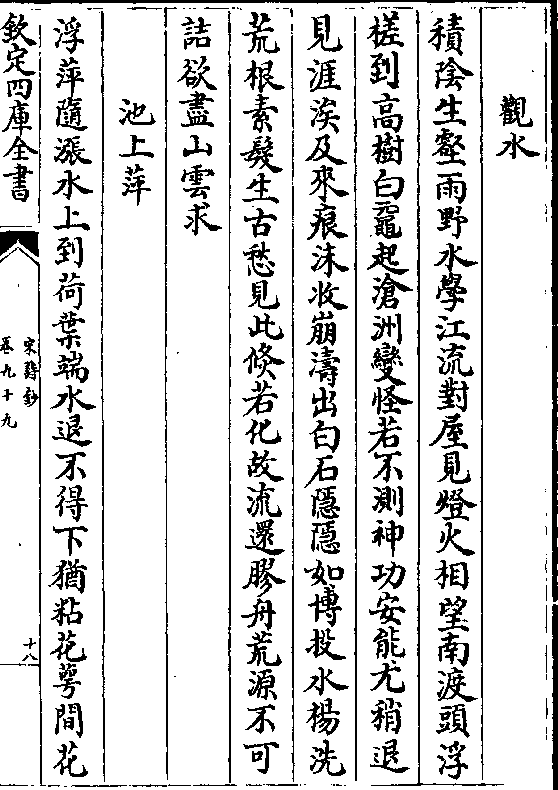 觀水
積陰生壑雨野水學江流對屋見燈火相望南渡頭浮
槎到高樹白黿起滄洲變怪若不測神功安能尤稍退
見涯涘及來痕沫收崩濤出白石隱隱如博投水楊洗
荒根素髮生古愁見此倐若化故流還膠舟荒源不可
詰欲盡山雲求
池上萍
浮萍隨漲水上到荷葉端水退不得下猶粘花萼間花
欽定四庫全書
宋詩鈔
卷九十九
十八